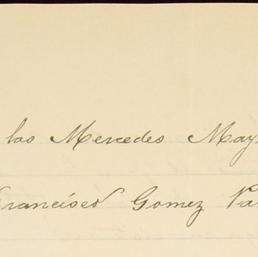 las Mercedes May
Francisco Gomez Va